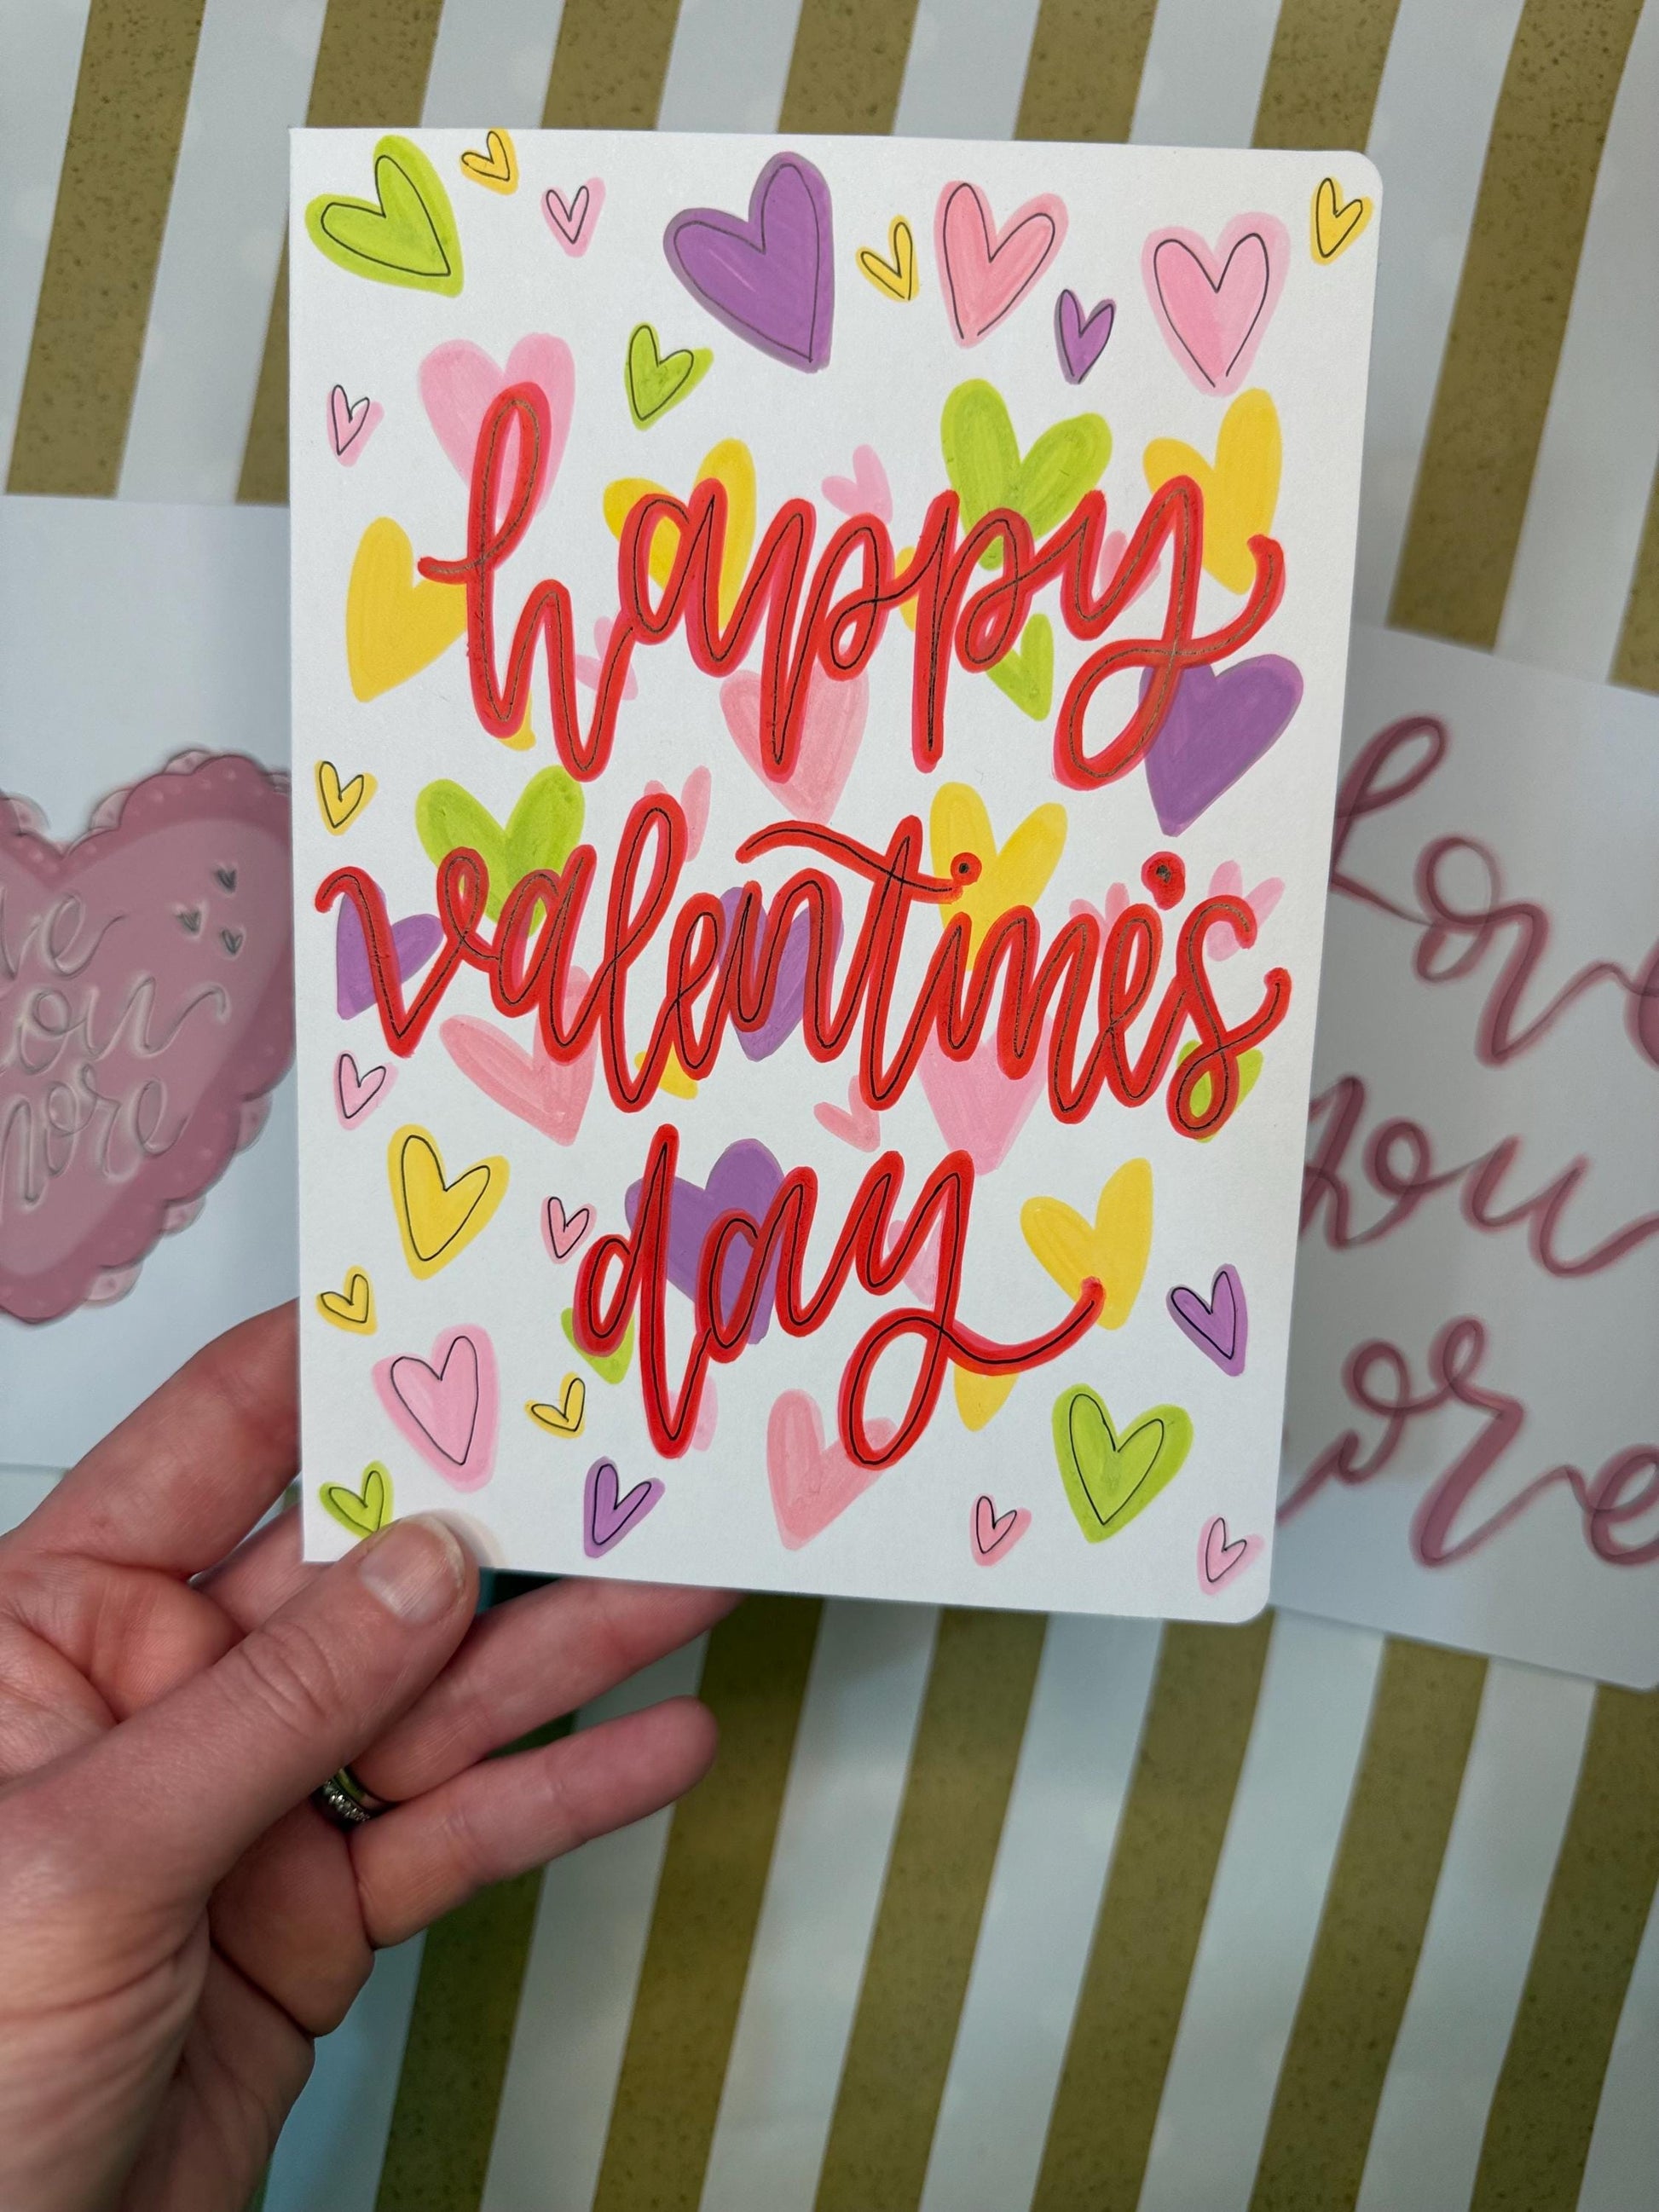 happy
valentine's
day
you
more
love
you